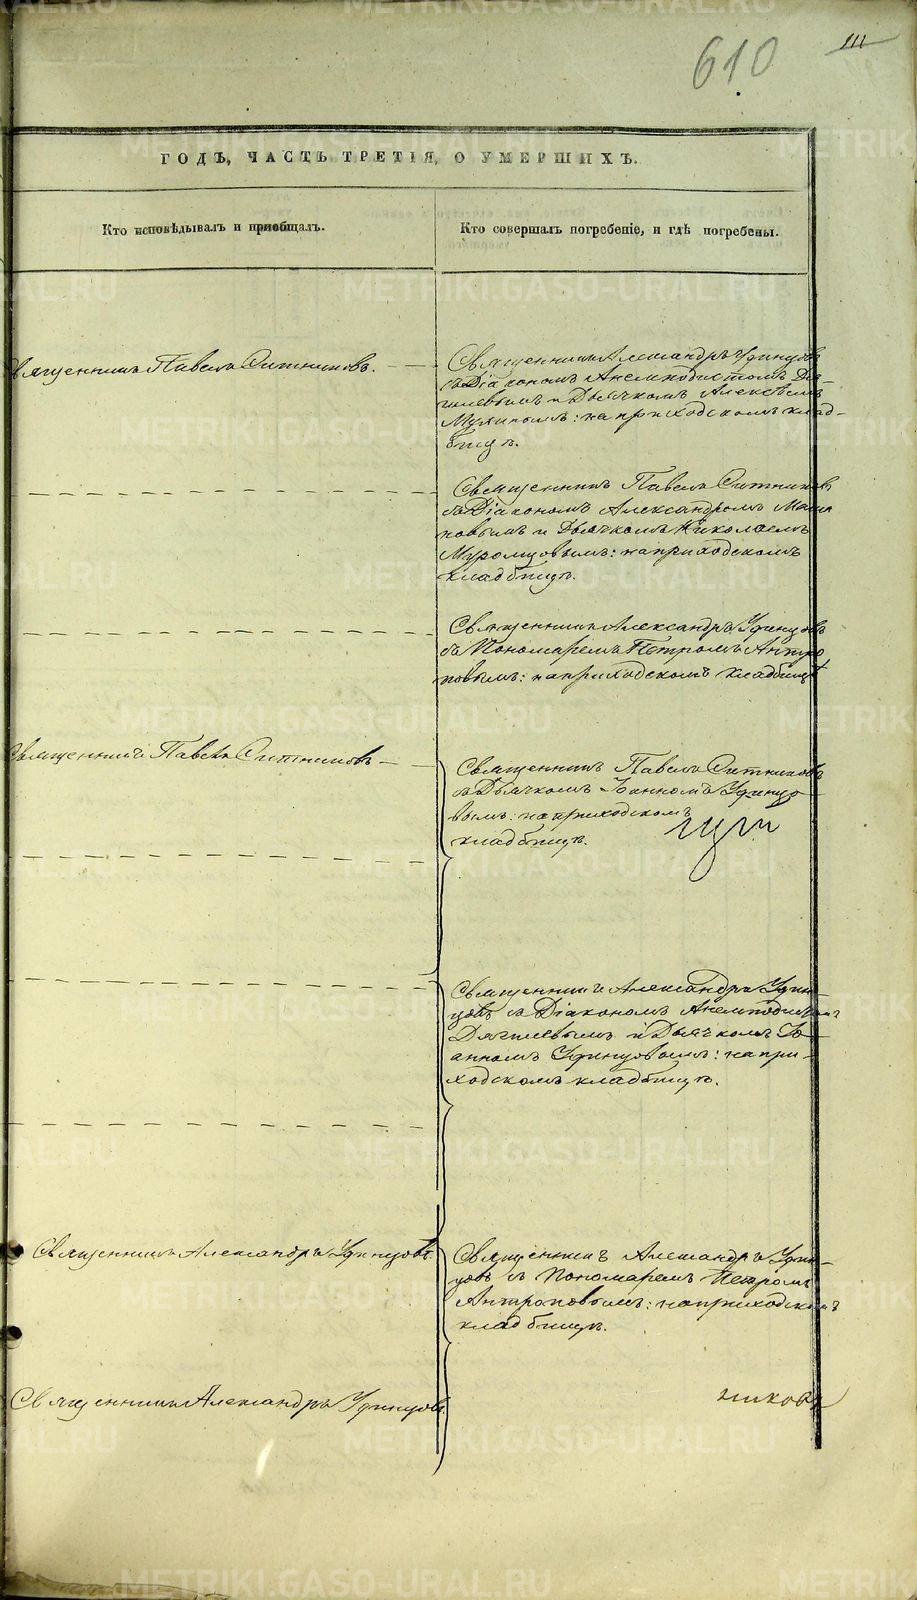 610
111
ГОДЪ, ЧАСТЬ ТРЕТІЯ, О УМЕРШИХЪ.
Кто исповѣдывалъ и пріобщалъ.
Кто совершалъ погребеніе, и гдѣ погребены.
Священникъ Павелъ Ситниковъ.
Священникъ Александръ Удинцовъ
съ Діакономъ Анемподистомъ Дя-
гилевымъ и Дьячкомъ Алексѣемъ
на приходскомъ клад-
бищѣ.
Священникъ Павелъ Ситниковъ
съ Діакономъ Александромъ
и Дьячкомъ Николаемъ
Муромцовымъ: на приходскомъ
кладбищѣ.
Священникъ Александръ Удинцовъ
съ Пономаремъ Петромъ Антро
повымъ: на приходскомъ кладбищѣ
Священникъ Павелъ Ситниковъ
Священникъ Павелъ Ситниковъ
съ Дьячкомъ Іоанномъ Удинцо
вымъ: на приходскомъ
кладбищѣ.
Священникъ Александръ Удин
цовъ съ Діакономъ Анемподистомъ
Дягилевымъ и Дьячкомъ Іо-
анномъ Удинцовымъ: на при-
ходскомъ кладбищѣ.
Священникъ Александръ Удинцовъ.
Священникъ Александръ Удин-
цовъ съ Пономаремъ Петромъ
Антроповымъ: на приходскомъ
кладбищѣ.
Священникъ Александръ Удинцовъ
никовъ
METRIKI.GASO-URAL.RU